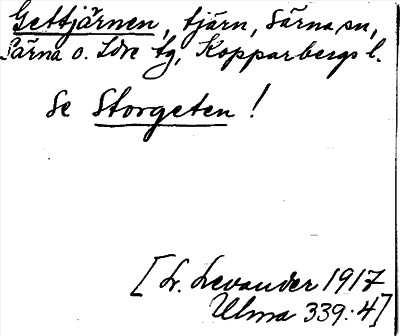 Gettjärnen, tjärn, Särna sn,
Särna o. Idre tg, Kopparbergs l.
Se Storgeten!
[L. Levander 1917
Ulma 339:4]